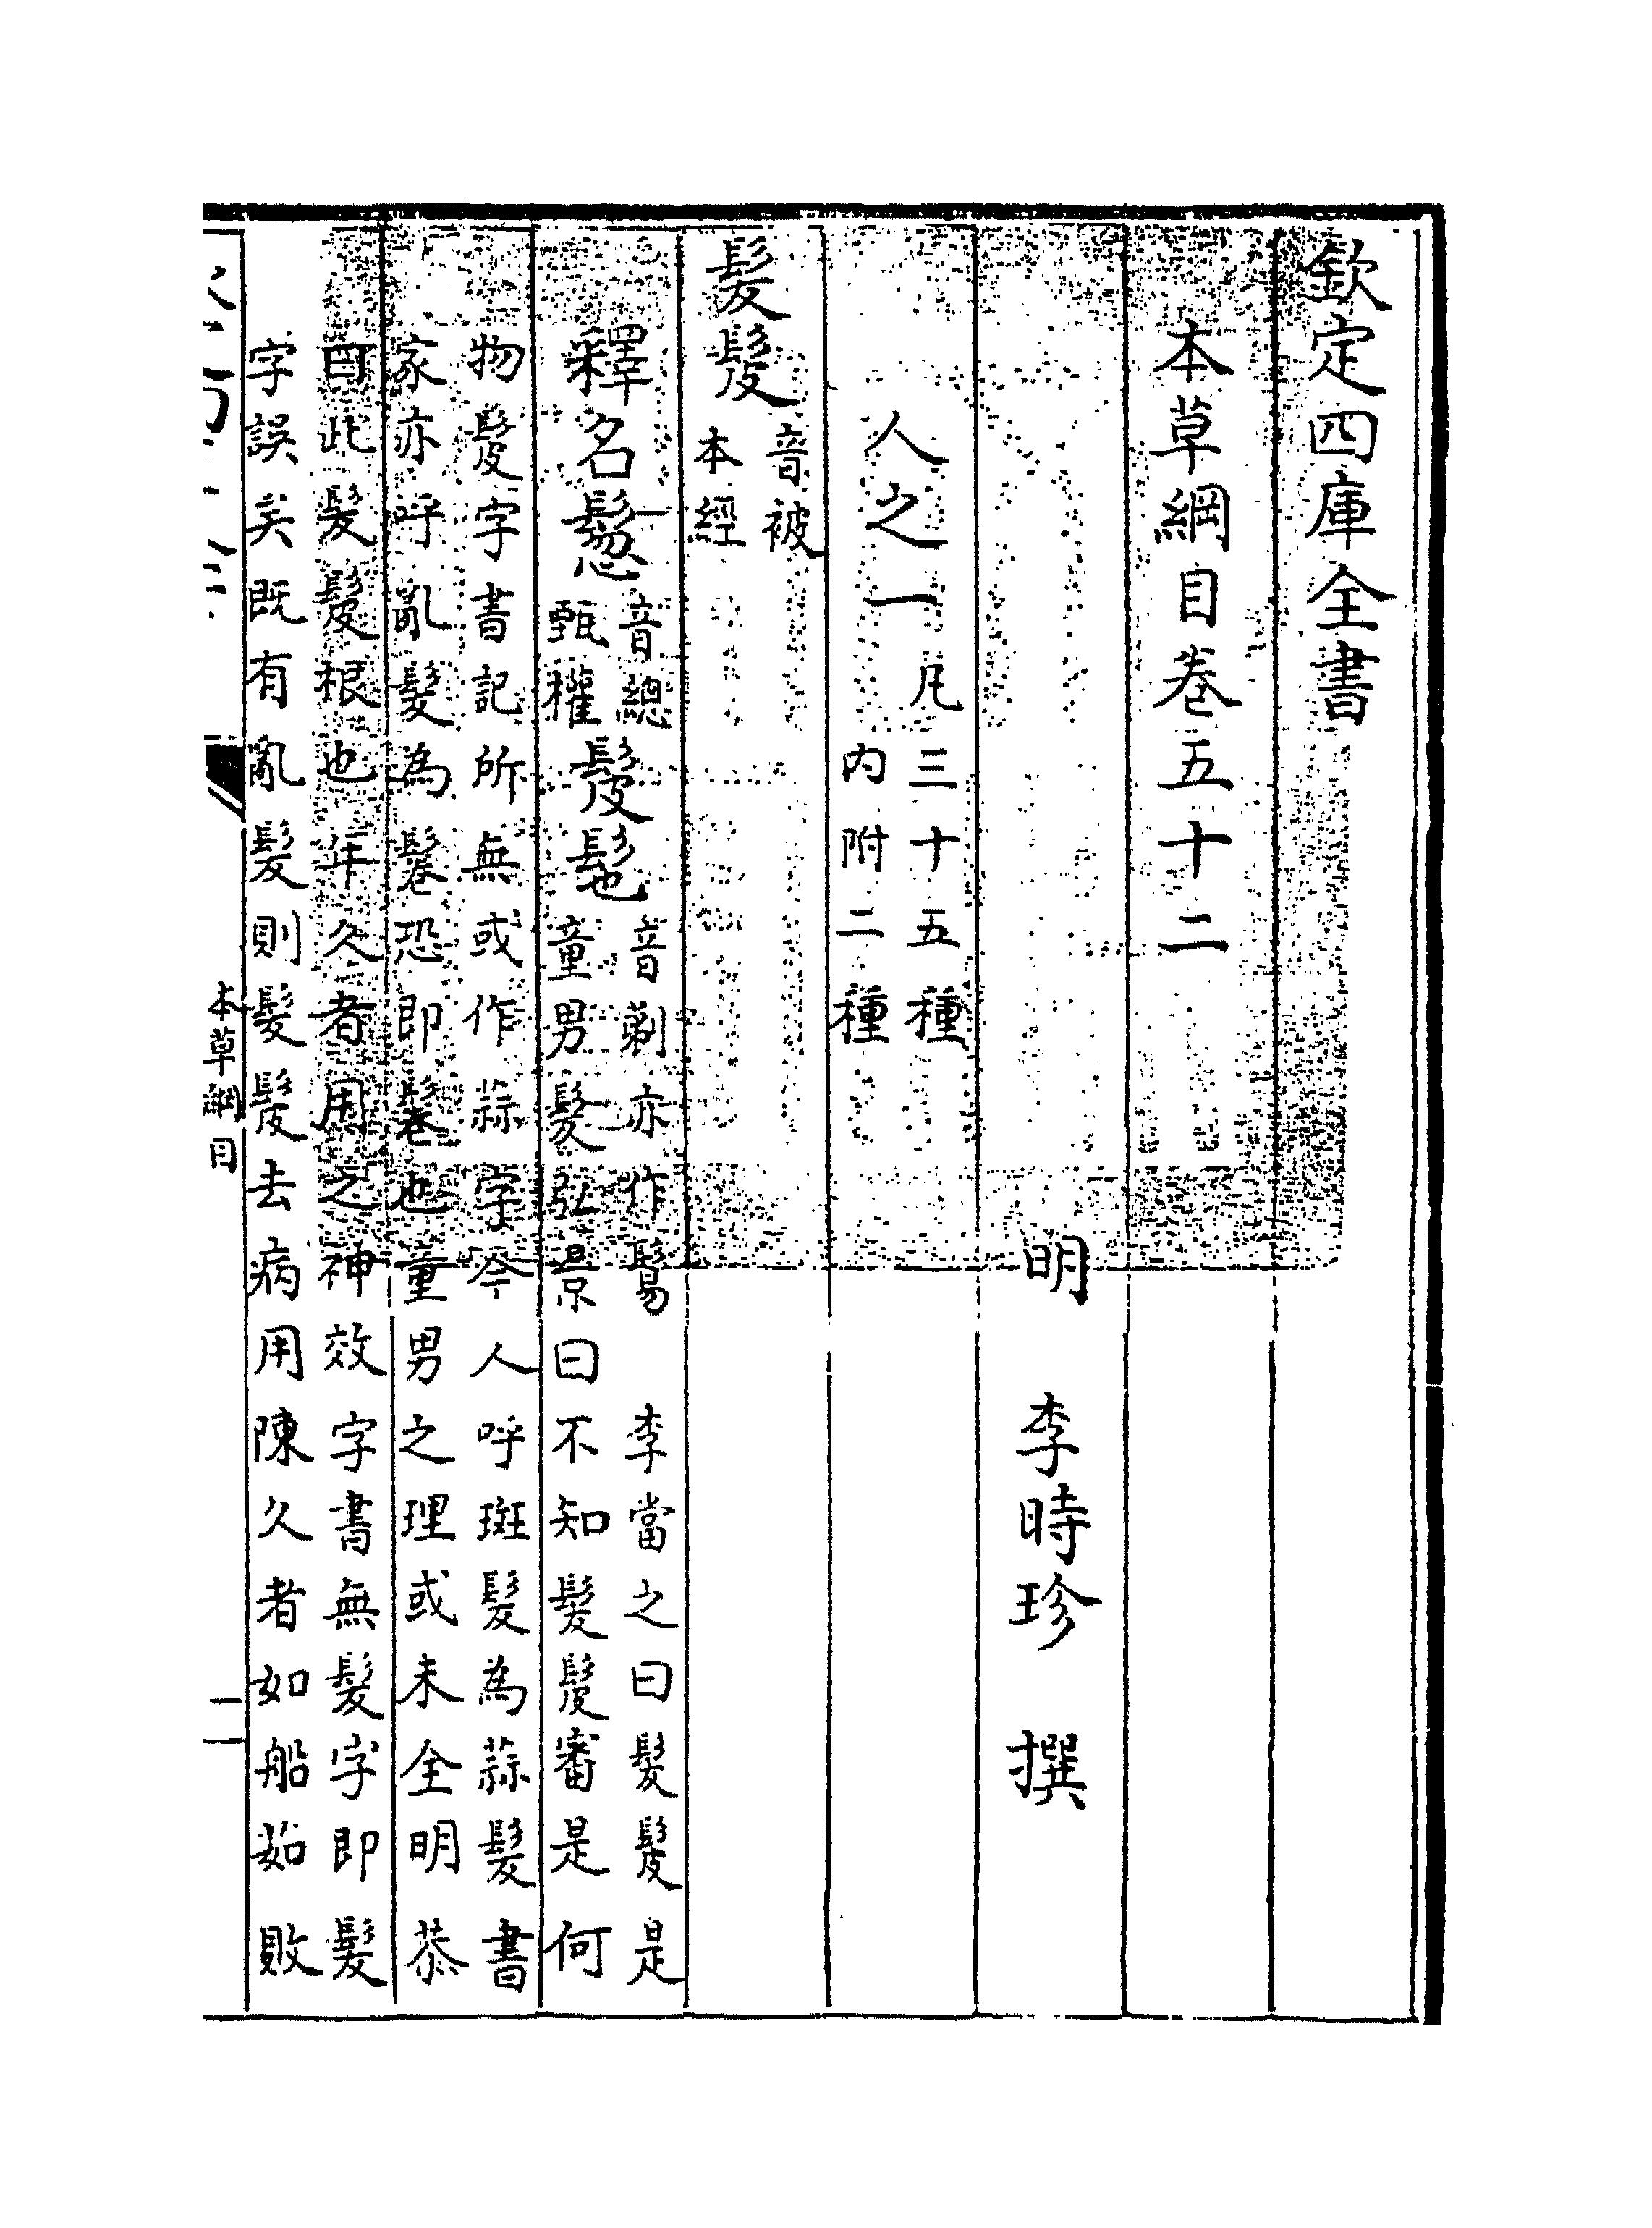 欽定四庫全書
本草綱目卷五十二
明 李時珍 撰
人之一
凡三十五種
内附二種
髪髲
音被
本經
釋名
音總
甄權
髲髢
音剃亦作鬄 李當之曰髪髲是
童男髪弘景曰不知髪髲審是何
物髲字書記所無或作蒜字今人呼斑髪為蒜髪書
家亦呼亂髪為鬈恐即鬈也童男之理或未全明恭
曰此髪髲根也年久者用之神效字書無髪字即髪
字誤矣既有亂髪則髪髲去病用陳久者如船茹敗
本草綱目